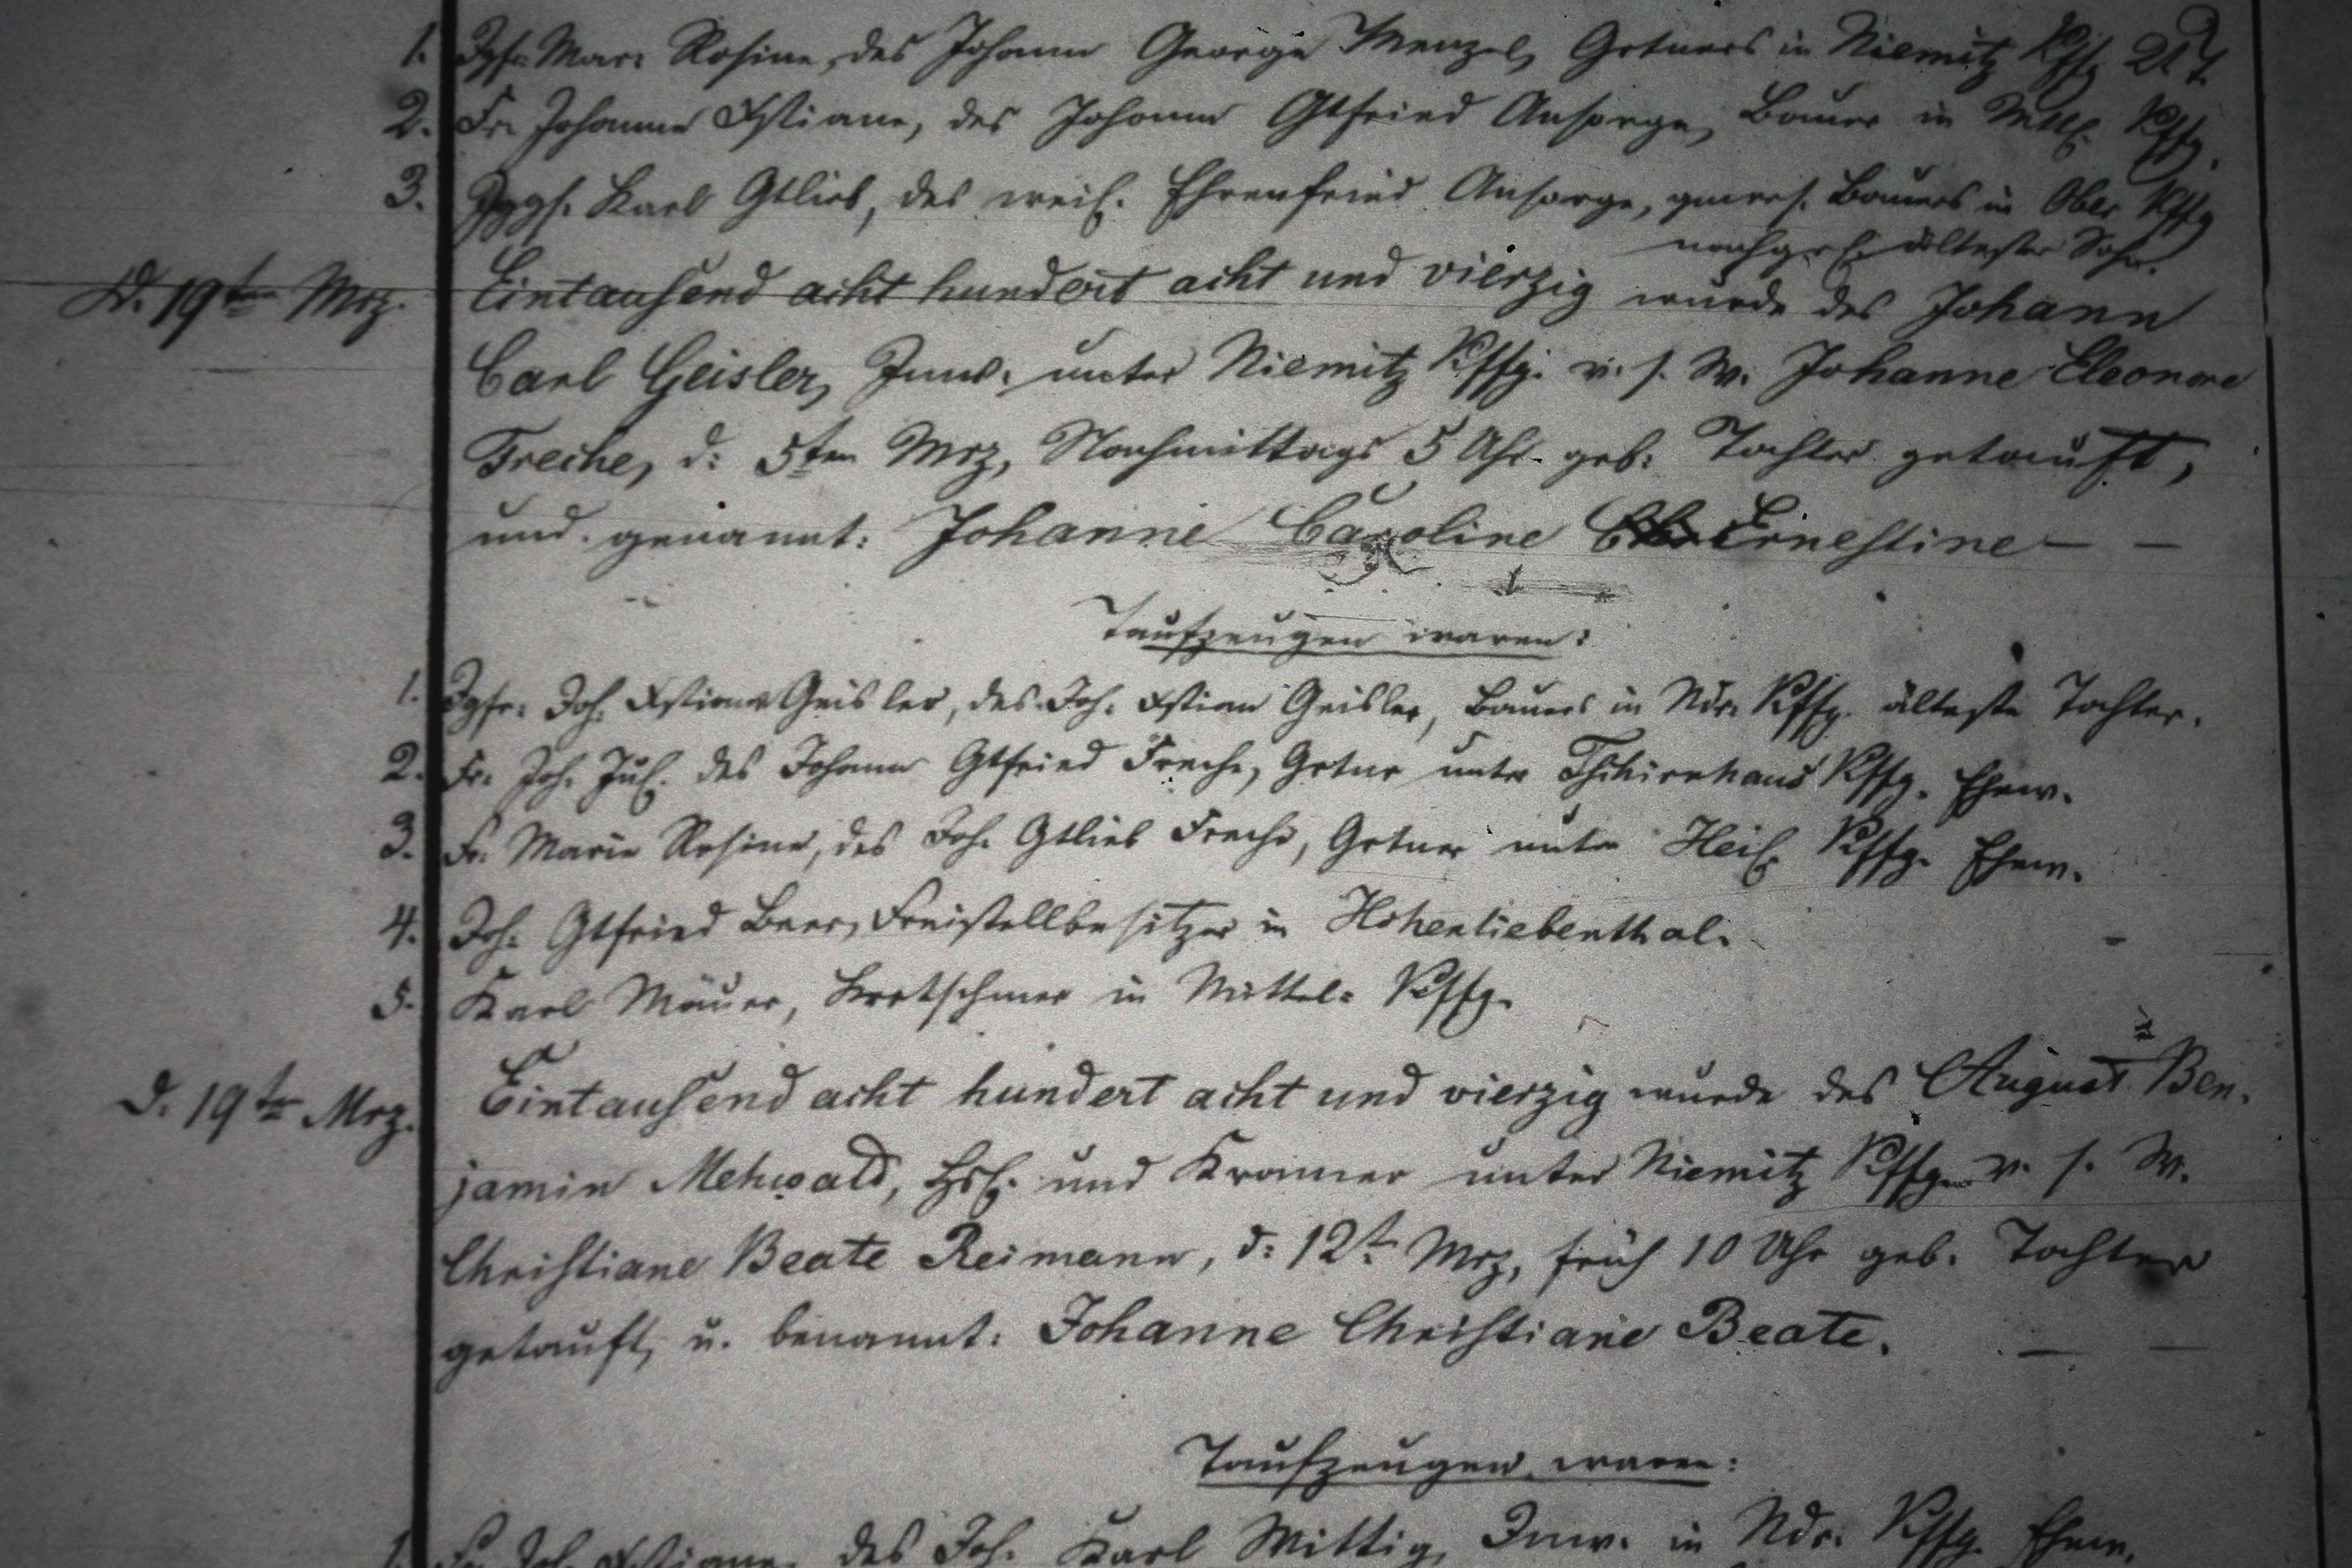 1. Jgfr. Mar: Rosine, des Johann George Menzel, Grtners in Niemitz Kffg 2t T.
2. Fr. Johanne Xstiane, des Johann Gtfried Ansorge, Bauer in Mttl. Kffg.
3. Jggs. Karl Gtlieb, des weil. Ehrenfried Ansorge, gewes. Bauers in Ober Kffg
nachgel. ältester Sohn.
D. 19ten Mrz. Eintausend acht hundert acht und vierzig wurde des Johann
Carl Geisler, Inw. unter Niemitz Kffg. v. s. W. Johanne Eleonore
Freche, d: 5ten Mrz, Nachmittags 5 Uhr geb: Tochter getauft,
und genannt: Johanne Caroline Ernestine — —
Taufzeugen waren:
1. Jgfr. Joh. Xstiane Geisler, des Joh. Xstian Geisler, Bauers in Ndr. Kffg. älteste Tochter.
2. Fr. Joh. Jul. des Johann Gtfried Freche, Grtner unter Tschirnhaus Kffg. Ehew.
3. Fr. Marie Rosine, des Joh. Gtlieb Freche, Grtner unter Heil. Kffg. Ehew.
4. Joh. Gtfried Beer, Freistellbesitzer in Hohenliebenthal.
5. Karl Mäuer, Kretschmer in Mittel- Kffg.
d. 19ten Mrz. Eintausend acht hundert acht und vierzig wurde des August Ben-
jamin Mehwald, Hsl. und Kramer unter Niemitz Kffg. v. s. W.
Christiane Beate Reimann, d: 12t. Mrz, früh 10 Uhr geb. Tochter
getauft, u. benannt: Johanne Christiane Beate. — —
Taufzeugen waren:
1. Fr. Joh. Xstiane, des Joh. Karl Wittig, Inw. in Ndr. Kffg. Ehew.